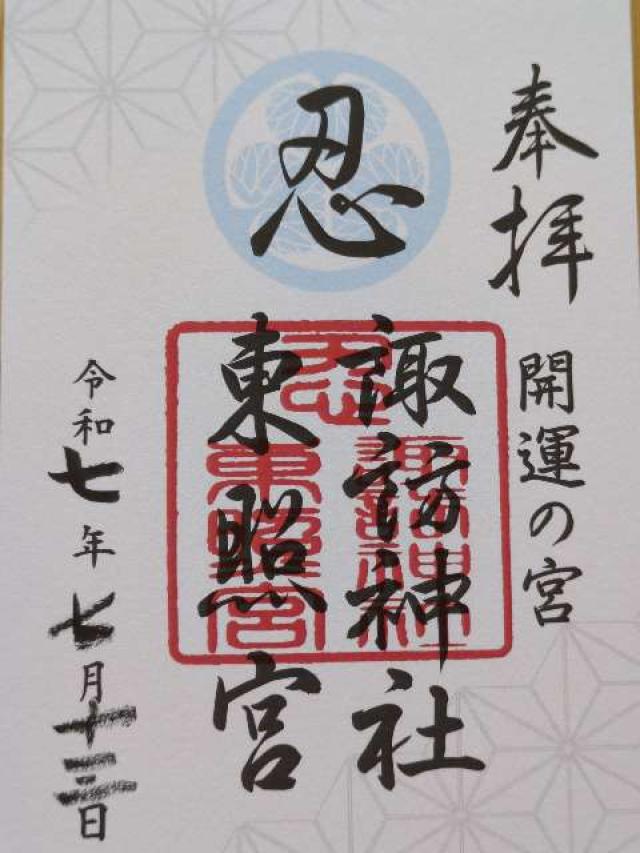 奉拝
開運の宮
忍
諏訪神社
東照宮
令和七年七月十三日
忍
諏訪神社
東照宮